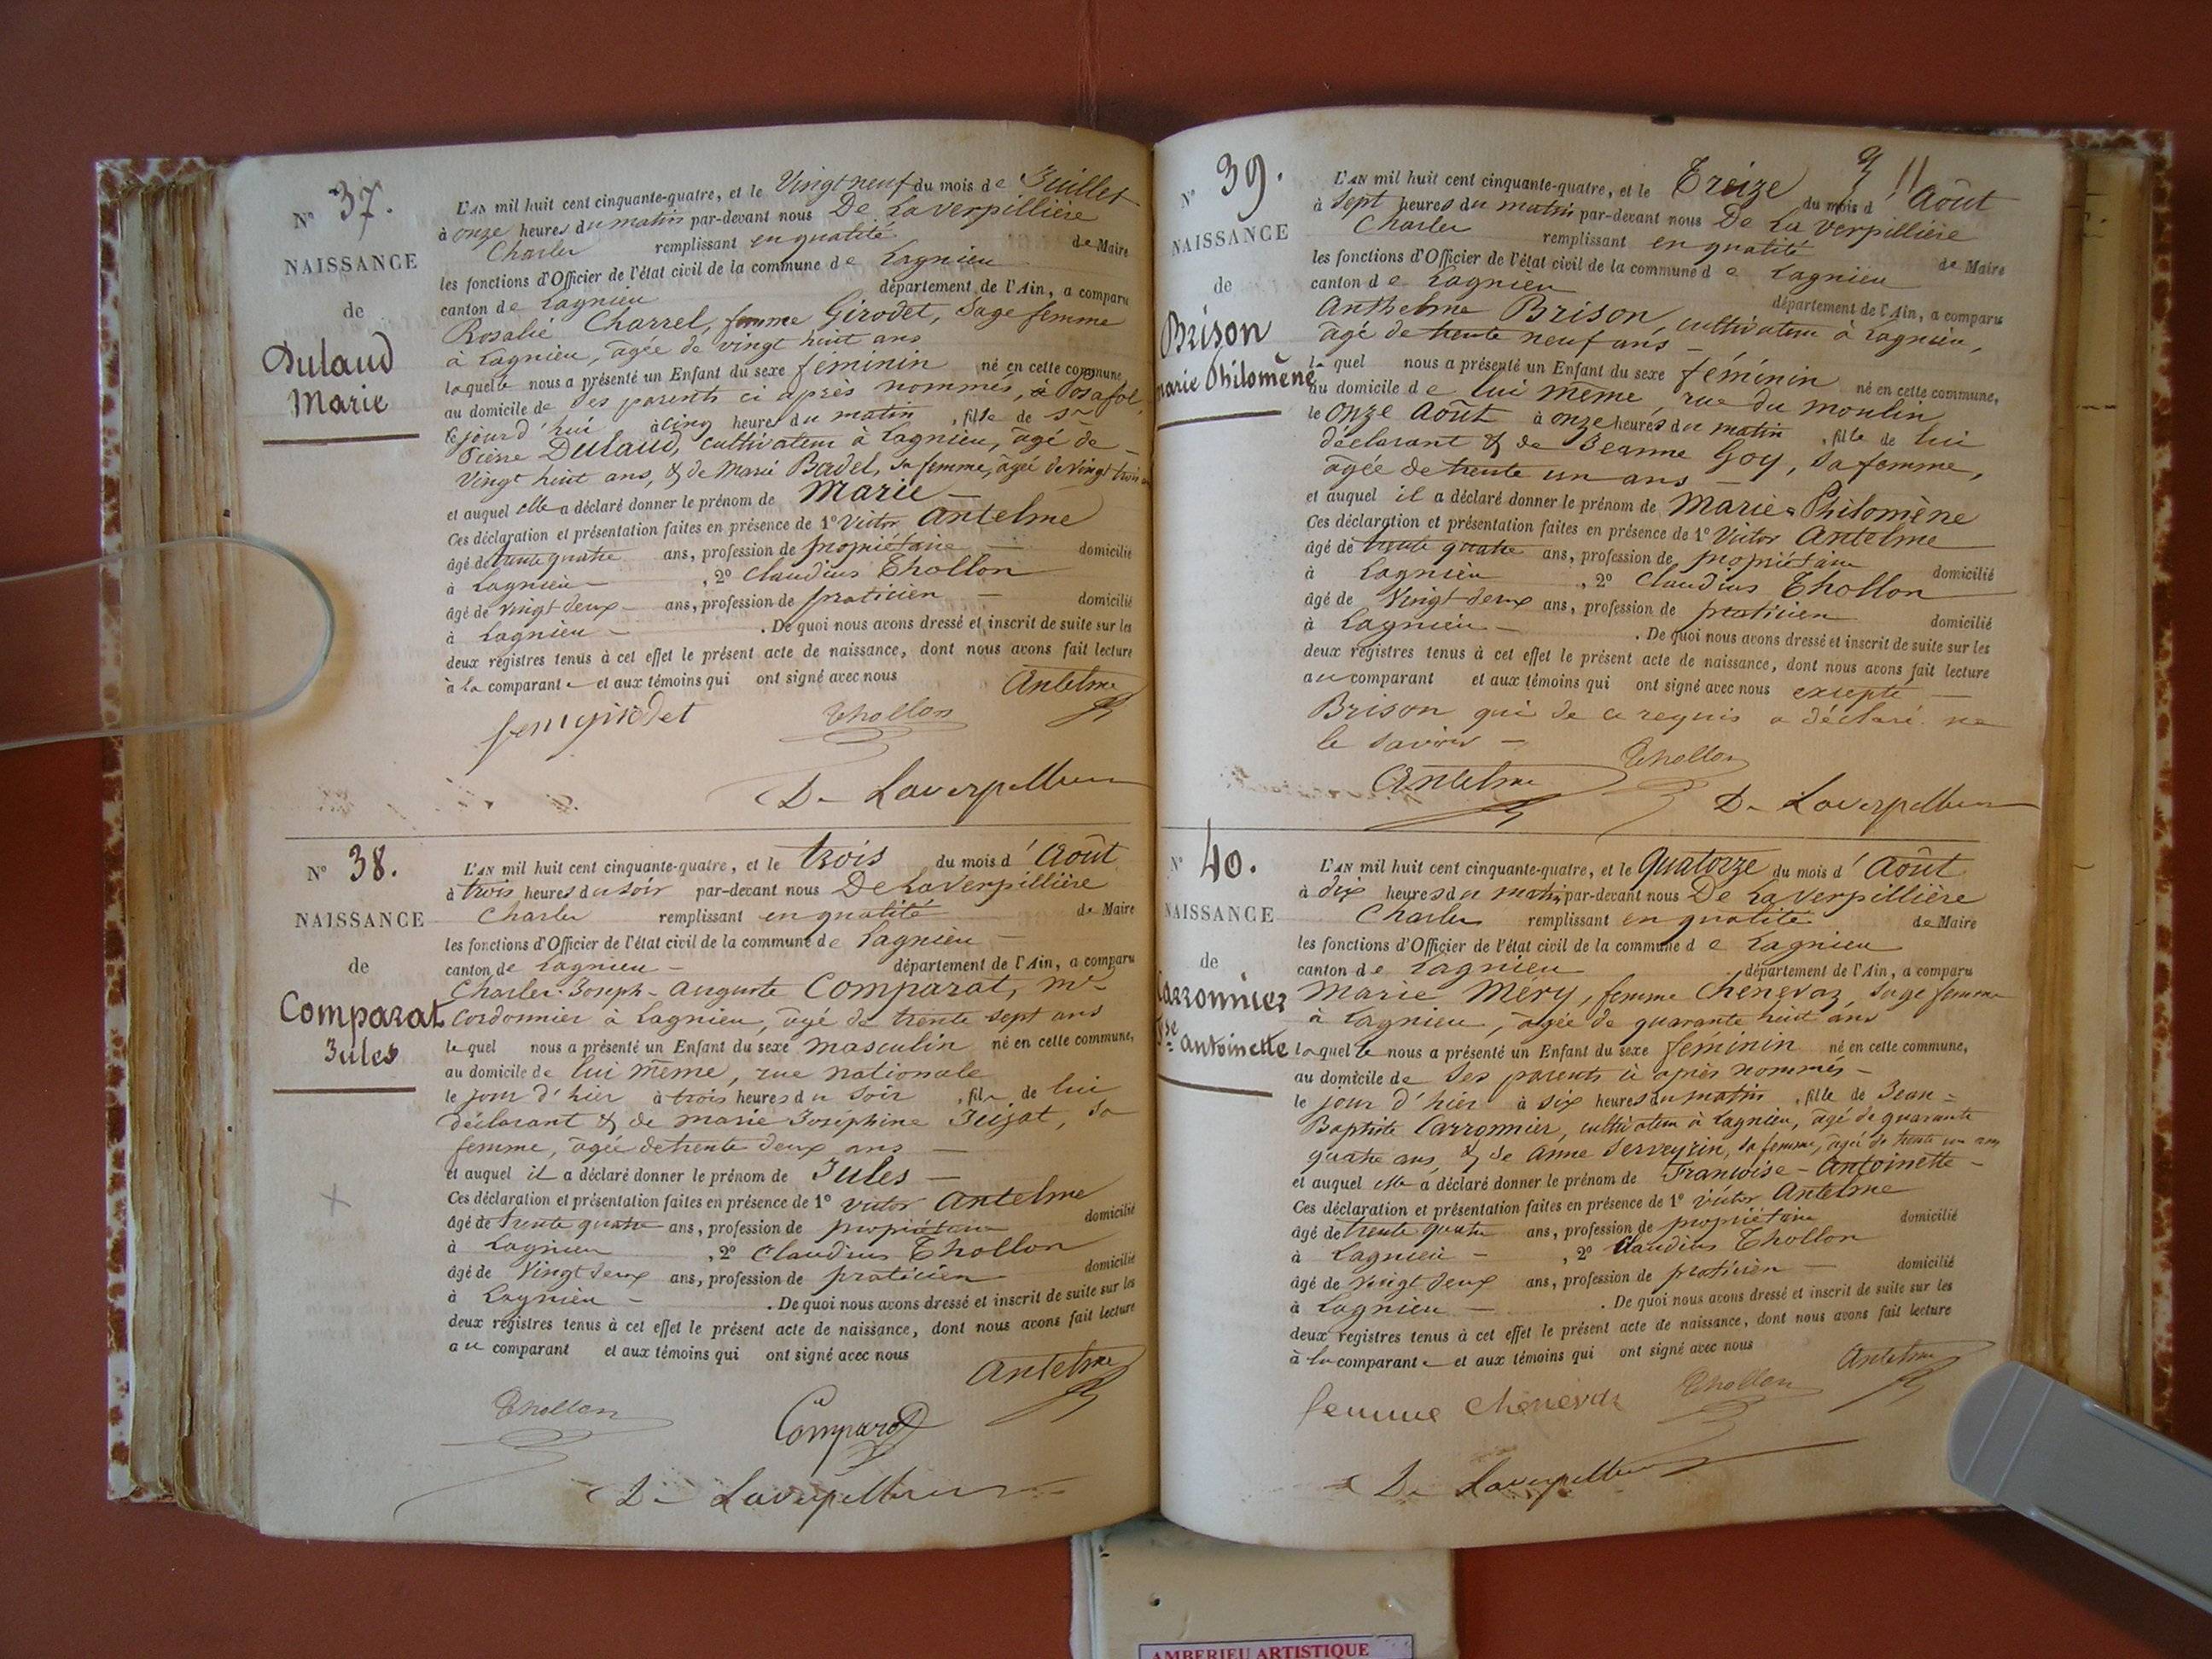 N° 37.
NAISSANCE
de
Dulaud
Marie
L'AN mil huit cent cinquante-quatre, et le Vingt neuf du mois de Juillet
à onze heures du matin par-devant nous De Laverpillière
Charles remplissant en qualité de Maire
les fonctions d'Officier de l'état civil de la commune de Lagnieu
canton de Lagnieu département de l'Ain, a comparu
Rosalie Charrel, femme Girodet, Sage femme
à Lagnieu, âgée de vingt huit ans
laquelle nous a présenté un Enfant du sexe féminin né en cette commune,
au domicile de ses parents ci après nommés, à Posafol,
le jourd'hui à cinq heures du matin, fille de Sr
Pierre Dulaud, cultivateur à Lagnieu, âgé de
Vingt huit ans, & de Marie Badel, sa femme, âgée de Vingt trois
et auquel elle a déclaré donner le prénom de Marie
Ces déclaration et présentation faites en présence de 1° Victor Antelme
âgé de trente quatre ans, profession de propriétaire domicilié
à Lagnieu, 2° Claudius Thollon
âgé de vingt deux ans, profession de praticien domicilié
à Lagnieu. De quoi nous avons dressé et inscrit de suite sur les
deux registres tenus à cet effet le présent acte de naissance, dont nous avons fait lecture
à la comparante et aux témoins qui ont signé avec nous
Antelme
fem girodet Thollon
De Laverpilliere
N° 38.
NAISSANCE
de
Comparat
Jules
L'AN mil huit cent cinquante-quatre, et le trois du mois d'Août
à trois heures du soir par-devant nous De Laverpillière
Charles remplissant en qualité de Maire
les fonctions d'Officier de l'état civil de la commune de Lagnieu
canton de Lagnieu département de l'Ain, a comparu
Charles-Joseph-Auguste Comparat, md
Cordonnier à Lagnieu, âgé de trente sept ans
lequel nous a présenté un Enfant du sexe masculin né en cette commune,
au domicile de lui même, rue nationale
le jour d'hier à trois heures du soir, fils de lui
déclarant & de marie Joséphine Juijat, sa
femme, âgée de trente deux ans
et auquel il a déclaré donner le prénom de Jules
Ces déclaration et présentation faites en présence de 1° Victor Antelme
âgé de trente quatre ans, profession de propriétaire domicilié
à Lagnieu, 2° Claudius Thollon
âgé de Vingt deux ans, profession de praticien domicilié
à Lagnieu. De quoi nous avons dressé et inscrit de suite sur les
deux registres tenus à cet effet le présent acte de naissance, dont nous avons fait lecture
au comparant et aux témoins qui ont signé avec nous
Antelme
Thollon Comparat
De Laverpilliere
11
N° 39.
NAISSANCE
de
Brison
marie Philomène
L'AN mil huit cent cinquante-quatre, et le Treize du mois d'Août
à Sept heures du matin par-devant nous De La Verpillière
Charles remplissant en qualité de Maire
les fonctions d'Officier de l'état civil de la commune de Lagnieu
canton de Lagnieu département de l'Ain, a comparu
Anthelme Brison, cultivateur à Lagnieu,
âgé de trente neuf ans
lequel nous a présenté un Enfant du sexe féminin né en cette commune,
au domicile de lui même, rue du moulin
le onze Août à onze heures du matin, fille de lui
déclarant & de Jeanne Goy, sa femme,
âgée de trente un ans
et auquel il a déclaré donner le prénom de Marie-Philomène
Ces déclaration et présentation faites en présence de 1° Victor Antelme
âgé de trente quatre ans, profession de propriétaire domicilié
à Lagnieu, 2° Claudius Thollon
âgé de Vingt deux ans, profession de praticien domicilié
à Lagnieu. De quoi nous avons dressé et inscrit de suite sur les
deux registres tenus à cet effet le présent acte de naissance, dont nous avons fait lecture
au comparant et aux témoins qui ont signé avec nous excepté
Brison qui de ce requis a déclaré ne
le savoir
Antelme Thollon
De Laverpilliere
N° 40.
NAISSANCE
de
Carronnier
Fse Antoinette
L'AN mil huit cent cinquante-quatre, et le Quatorze du mois d'Août
à dix heures du matin par-devant nous De Laverpillière
Charles remplissant en qualité de Maire
les fonctions d'Officier de l'état civil de la commune de Lagnieu
canton de Lagnieu département de l'Ain, a comparu
Marie Mery, femme Chenevaz, sage femme
à Lagnieu, âgée de quarante huit ans
laquelle nous a présenté un Enfant du sexe féminin né en cette commune,
au domicile de ses parents ci après nommés
le jour d'hier à six heures du matin, fille de Jean-
Baptiste Carronnier, cultivateur à Lagnieu, âgé de quarante
quatre ans, & de Anne Serveyrin, sa femme, âgée de trente un ans
et auquel elle a déclaré donner le prénom de Françoise-Antoinette
Ces déclaration et présentation faites en présence de 1° Victor Antelme
âgé de trente quatre ans, profession de propriétaire domicilié
à Lagnieu, 2° Claudius Thollon
âgé de vingt deux ans, profession de praticien domicilié
à Lagnieu. De quoi nous avons dressé et inscrit de suite sur les
deux registres tenus à cet effet le présent acte de naissance, dont nous avons fait lecture
à la comparante et aux témoins qui ont signé avec nous
femme Chenevaz Thollon Antelme
De Laverpilliere
AMBERIEU ARTISTIQUE